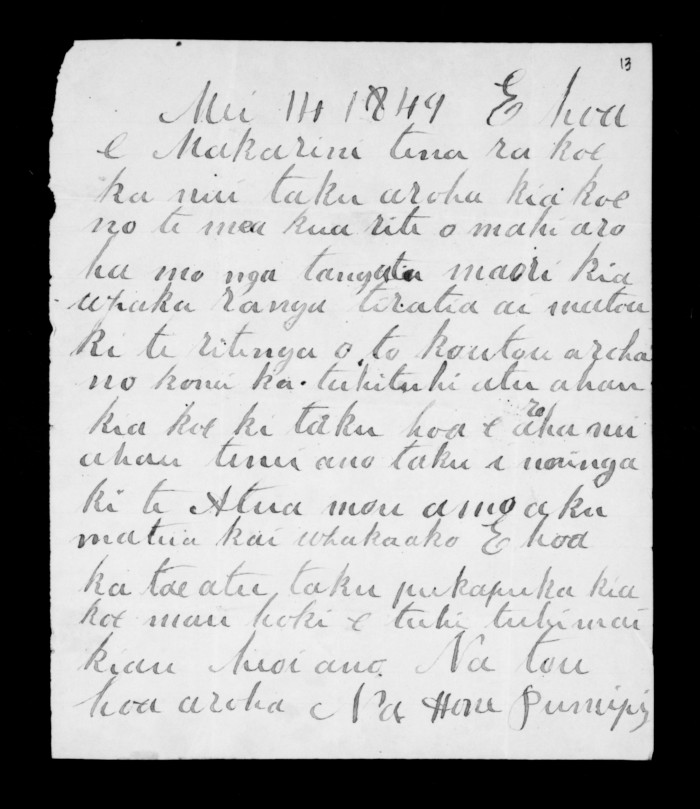 13
Mei 14 1849 E hoa
e Makarini tena ra koe
ka nui taku aroha kia koe
no te mea kua rite o mahi aro
ha mo nga tangata maori kia
whaka ranga tiratia ai matou
ki te ritenga o to koutou aroha
no konei ka tuhituhi atu ahau
kia koe ki taku hoa e aroha nui
ahau tenei ano taku i noinga
ki te Atua mou a mo aku
matua kai whakaako E hoa
ka tae atu taku pukapuka kia
koe mau hoki e tuhi tuhi mai
kiau heoi ano. Na tou
hoa aroha Na Hone